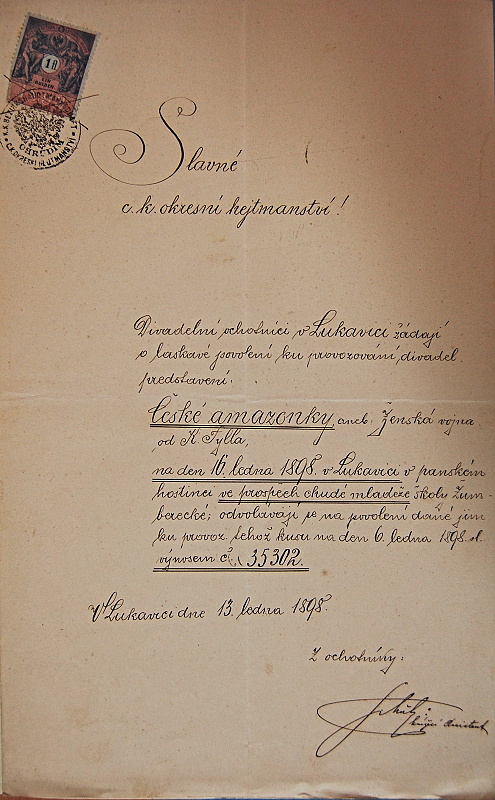 1 fl
EIN GULDEN
CHRUDIM
Slavné
c. k. okresní hejtmanství!
Divadelní ochotníci v Lukavici žádají
o laskavé povolení ku provozování divadel.
představení:
České amazonky, aneb: Ženská vojna
od K. Tylla,
na den 16. ledna 1898. v Lukavici v panském
hostinci ve prospěch chudé mládeže školy Žum-
berecké; odvolávají se na povolení dané jim
ku provoz. téhož kusu na den 6. ledna 1898. dl.
výnosem č. 35302.
V Lukavici dne 13. ledna 1898.
Z ochotníky: